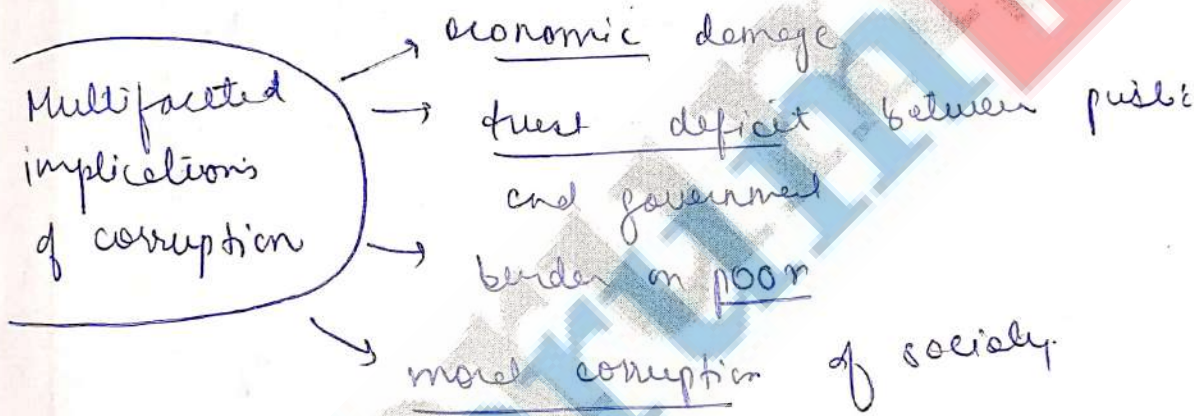 Multifaceted
implications
of corruption
economic damage
trust deficit between public
and government
burden on poor
moral corruption of society.